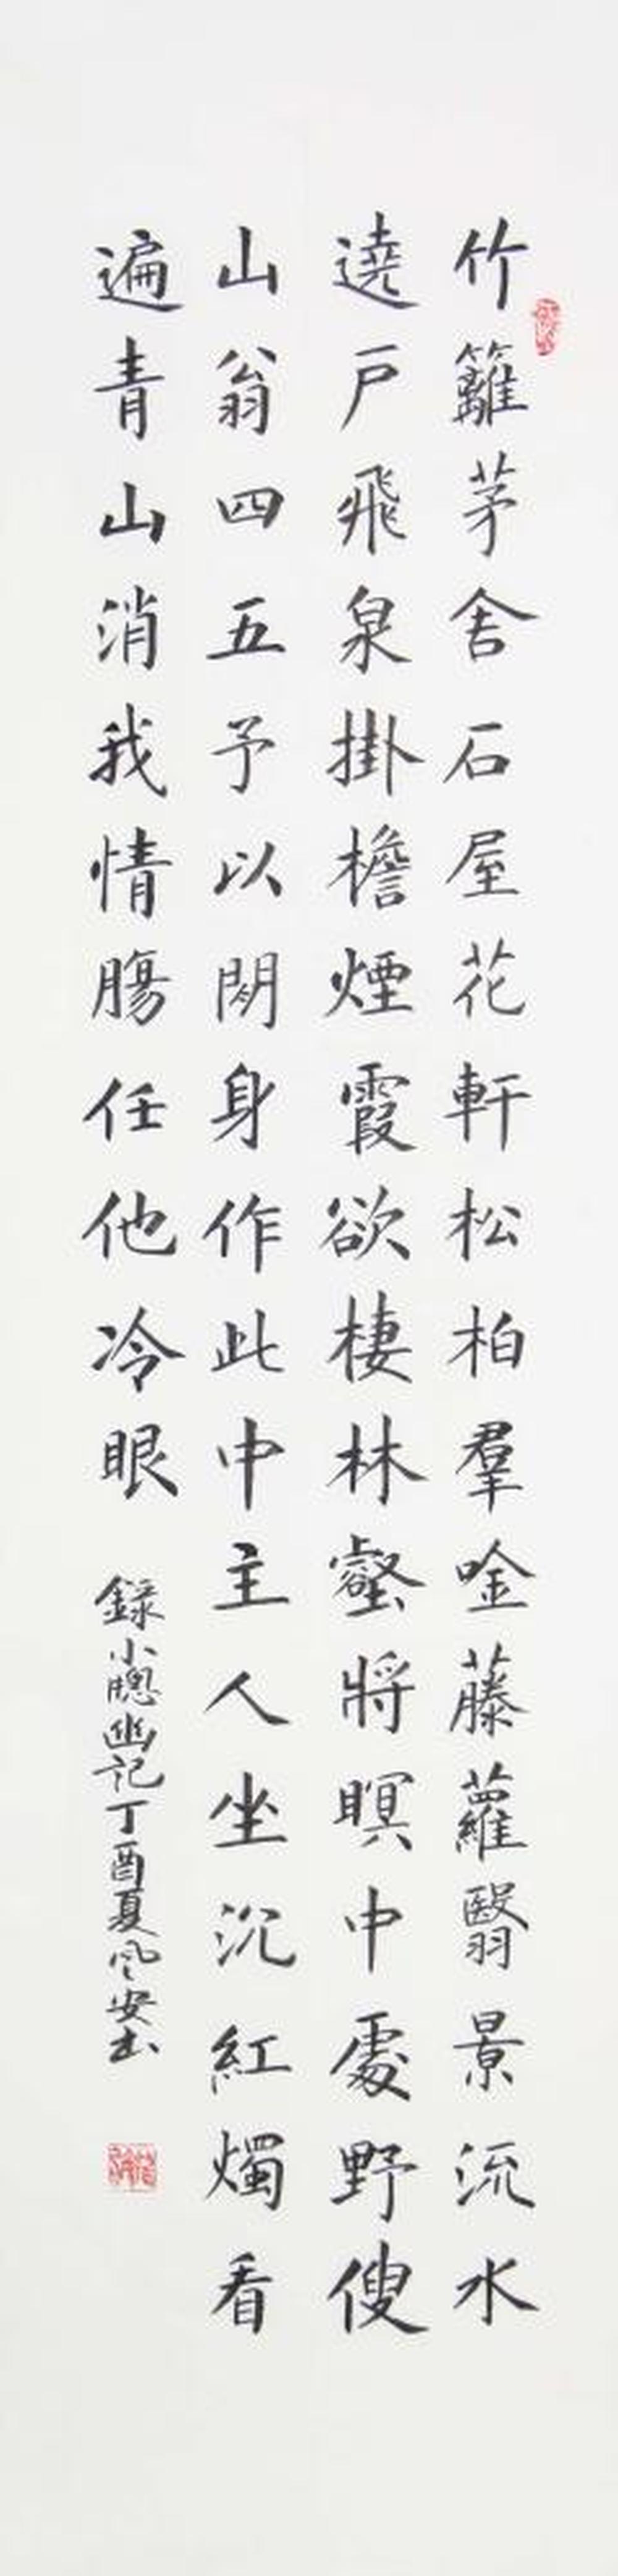 竹籬茅舍石屋花軒松柏羣唫藤蘿翳景流水
遶戶飛泉掛檐煙霞欲棲林壑將瞑中處野傁
山翁四五予以閒身作此中主人坐沉紅燭看
遍青山消我情腸任他冷眼
錄小牕幽記丁酉夏風安书